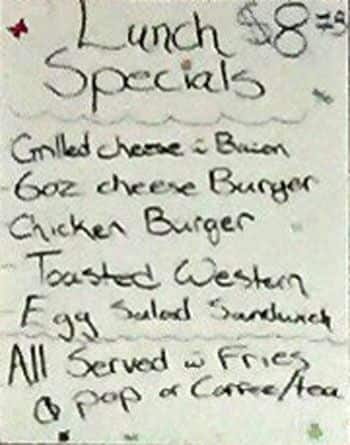 Lunch $8.75
Specials
Grilled cheese w Bacon
6oz cheese Burger
Chicken Burger
Toasted Western
Egg Salad Sandwich
All Served w Fries
& pop or Coffee/tea